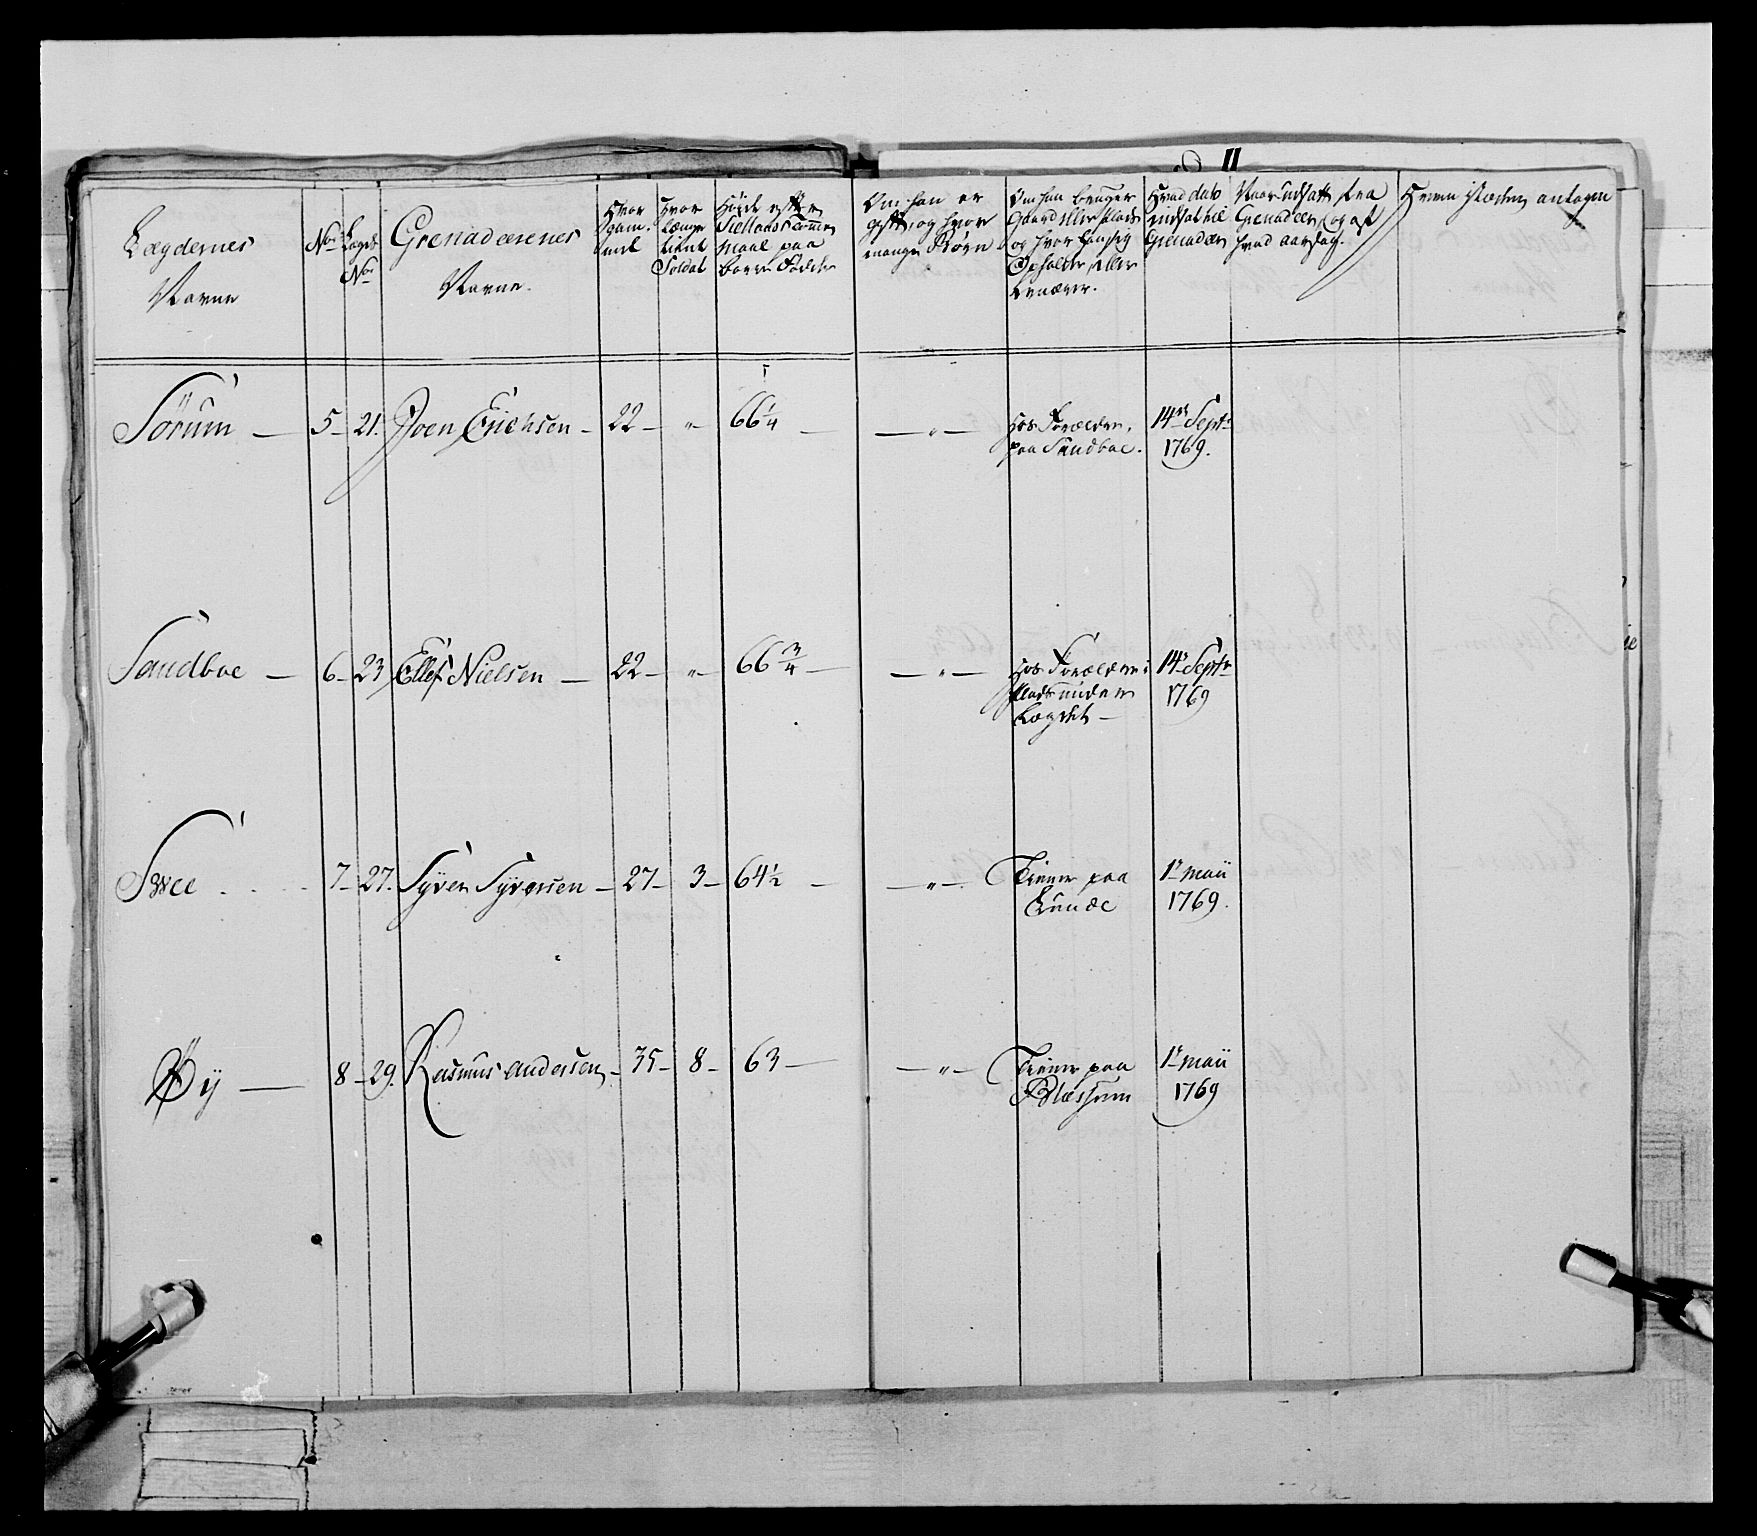 11
Lægdernes
Navne
No
Lægds
No
Grenadeerenes
Navne.
Hvor
gam-
mel
Hvor
længe
tient
Soldat
Høide efter
Siellandsk Tomme
Maal paa
barre Fødder
Om han er
gift, og hvor
mange Børn
Om han bruger
Gaard eller Plads
og hvor han sig
Opholder eller
tienner.
Hvad dato
indsat til
Grenadeer
Naar udsatt fra
Grenadeer, og af
hvad aarsag.
Hvem i Stæden antagen
Sørum — 5 - 21. Joen Erichsen - 22 - " 66 1/4 — — " — Hos Forældre
paa Sandboe. 14de Septr
1769.
Sandboe — 6 - 23 Ellef Nielsen — 22 - " 66 3/4 — — " — Hos Forældre
Plads under
Lægdet — 14de Septr
1769
Svee . . . . 7 - 27. Syver Syversen - 27 - 3 - 64 1/2 — — " — Tiener paa
Lunde 1te Maii
1769.
Øy — 8 - 29. Rasmus Andersen - 35 - 8 - 63 — — " — Tiener paa
Blæssum 1te Maii
1769